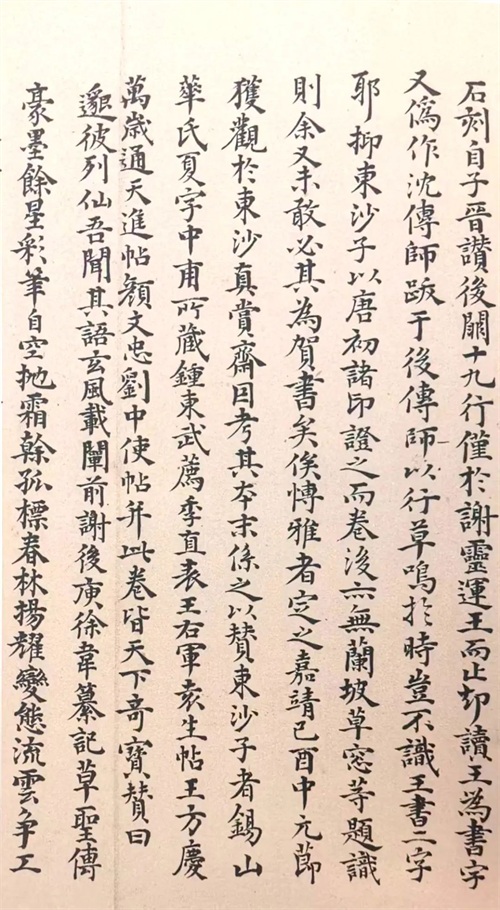 石刻自子晉讚後闕十九行僅於謝靈運王而止却讀王為書字
又偽作沈傳師跋于後傳師以行草鳴於時豈不識王書二字
耶抑東沙子以唐初諸印證之而卷後亦無蘭坡草窓等題識
則余又未敢必其為賀書矣俟博雅者定之嘉靖己酉中元節
獲觀於東沙真賞齋因考其本末係之以贊東沙子者錫山
華氏夏字中甫所藏鍾東武薦季直表王右軍袁生帖王方慶
萬歲通天進帖顏文忠劉中使帖并此卷皆天下奇寶贊曰
邈彼列仙吾聞其語玄風載闡前謝後庾徐韋纂記草聖傳
豪墨餘星彩筆自空抛霜榦孤標春林揚耀變態流雲爭工